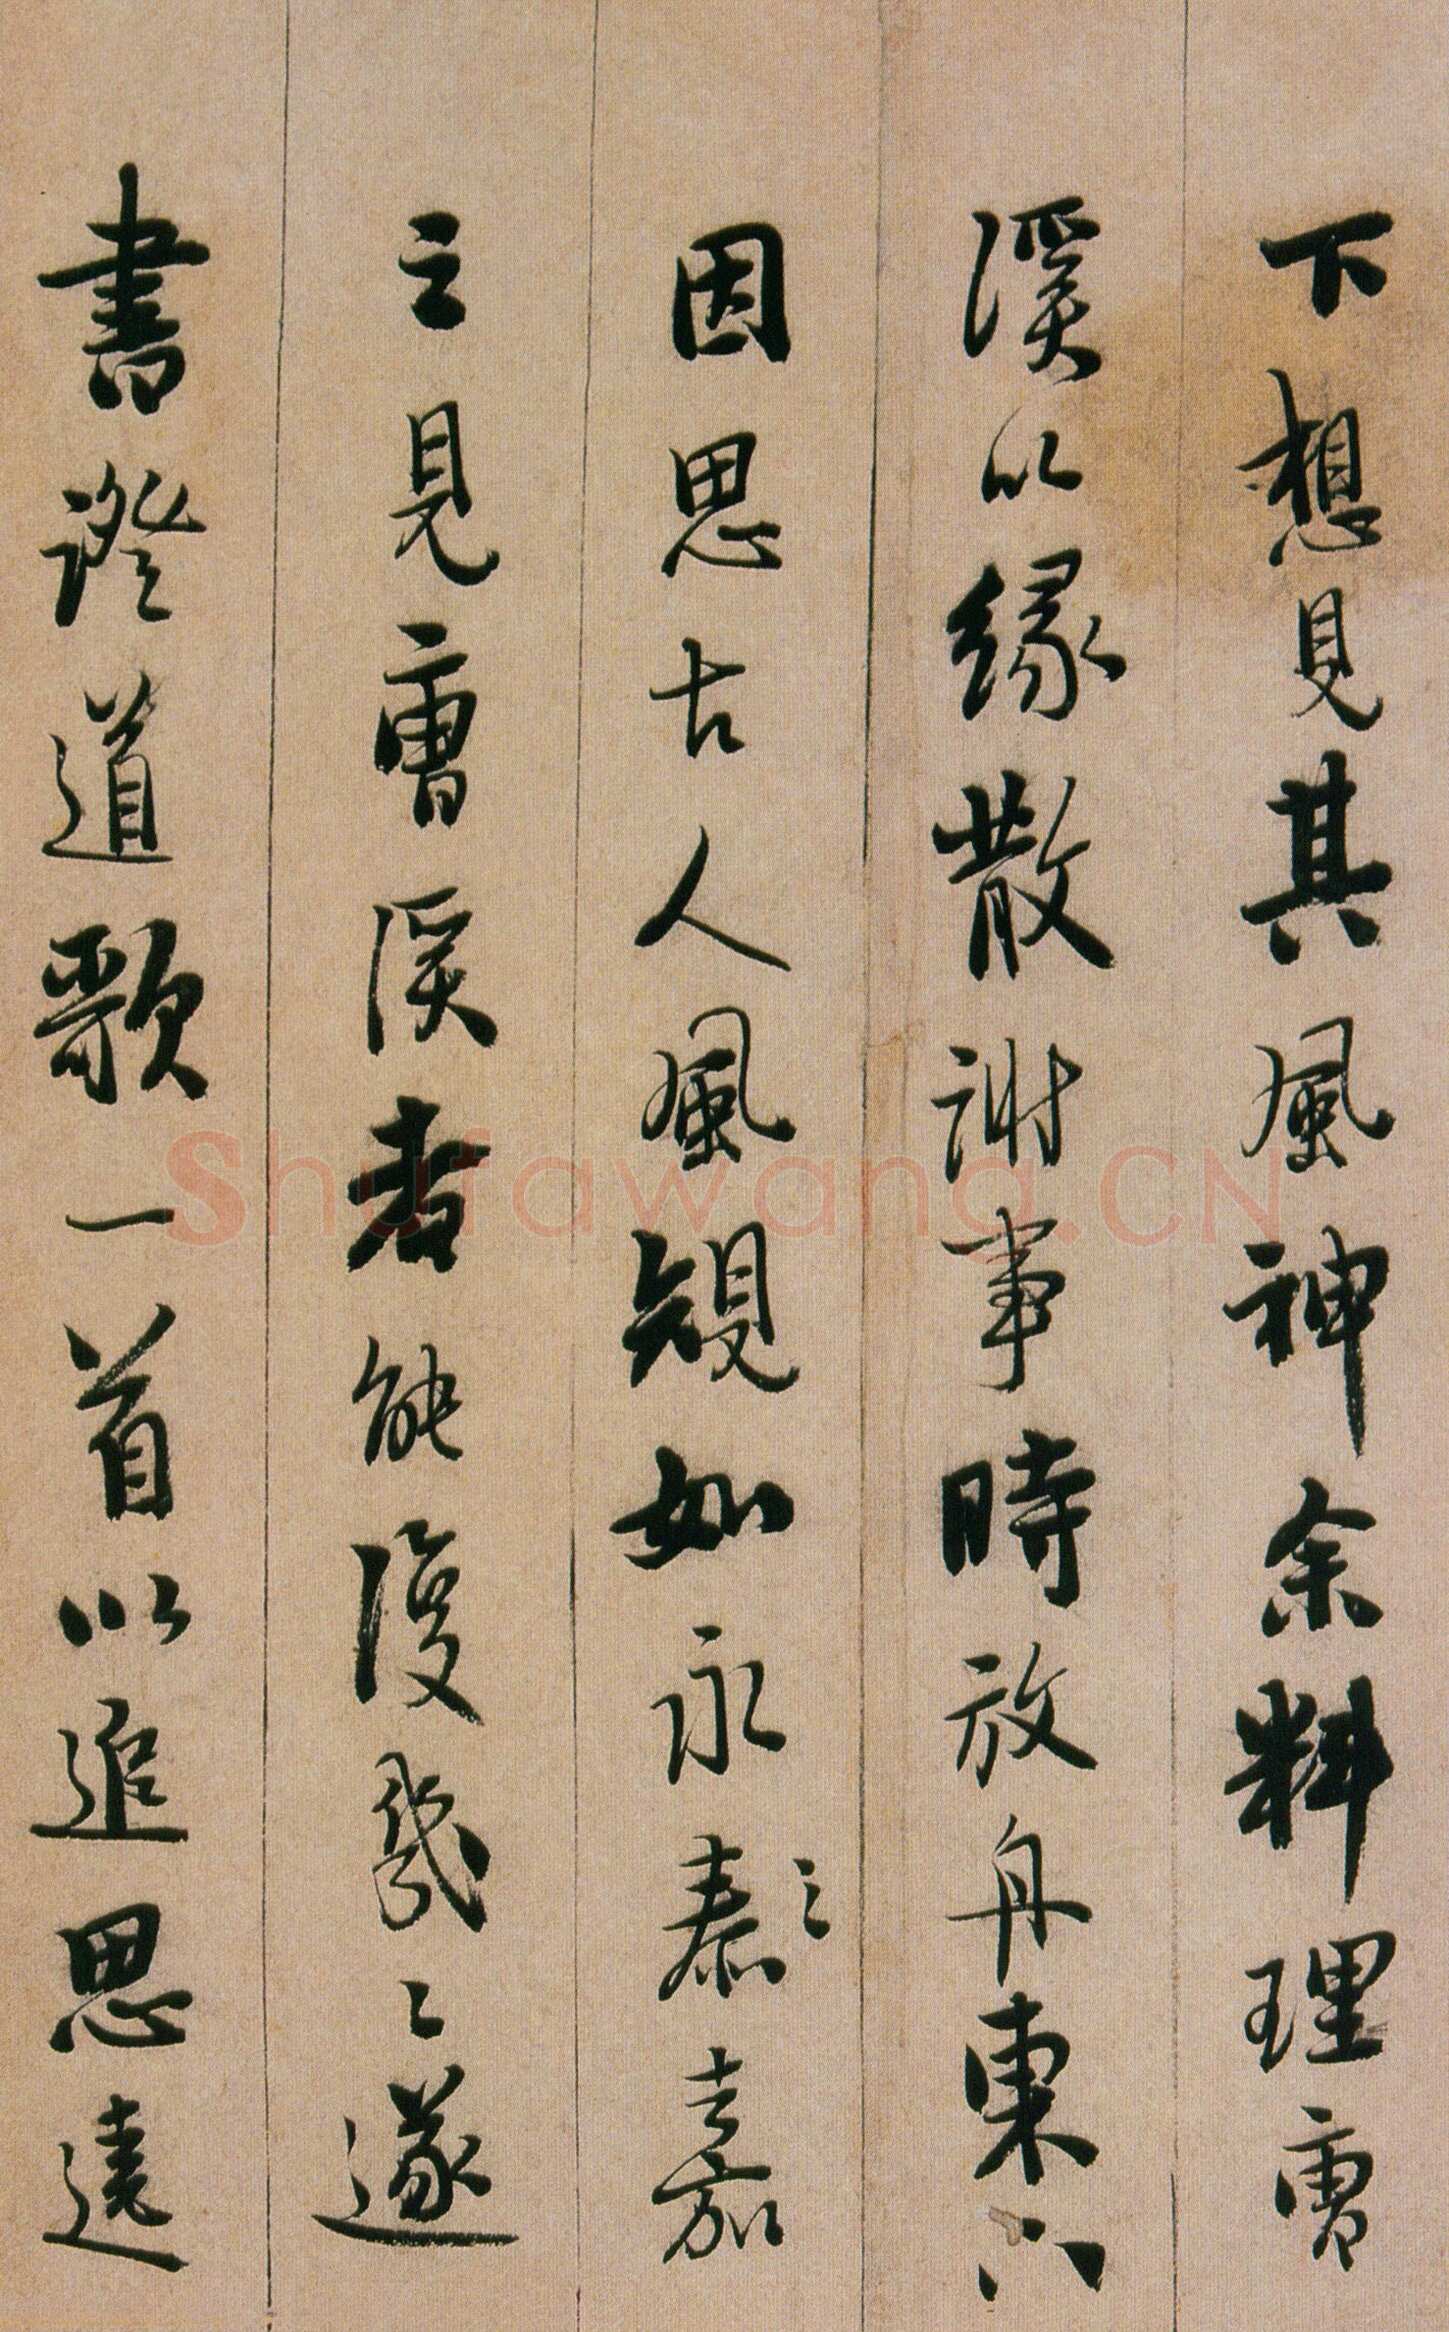 下想見其風神余料理曹
溪以緣散謝事時放舟東
因思古人風規如永泰嘉
之見曹溪者能復幾〻遂
書證道歌一首以追思遠
Shufawang.CN